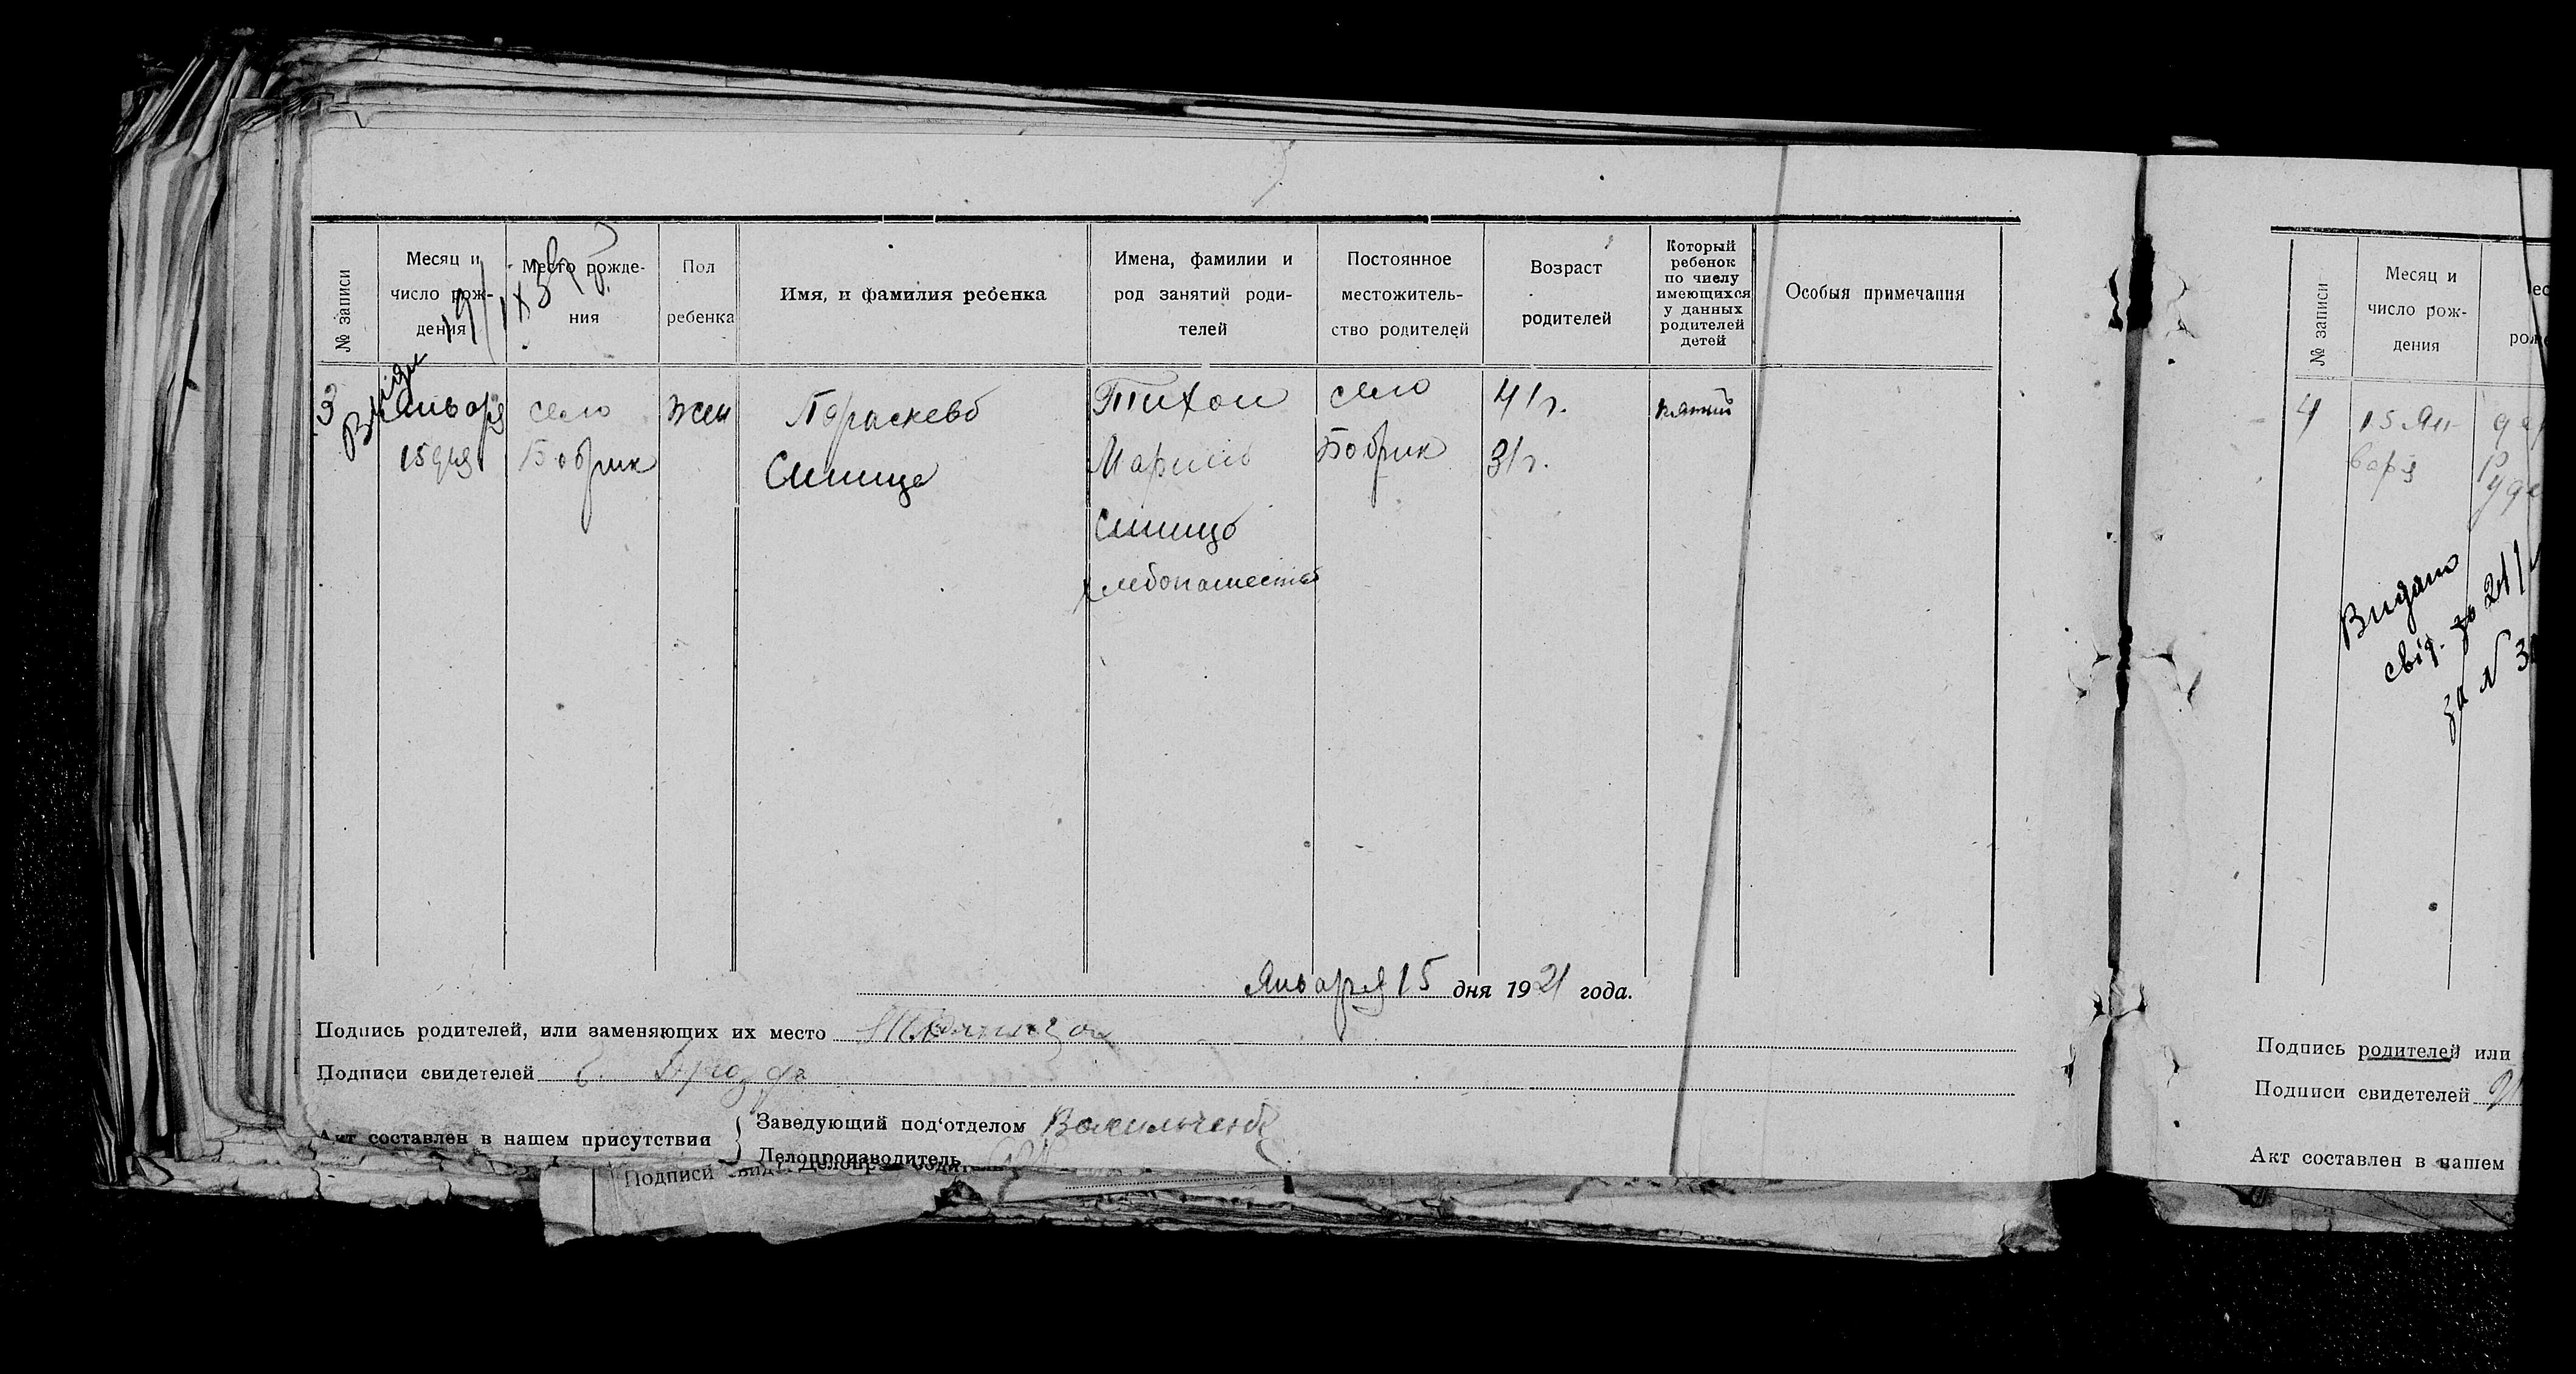 № записи
Месяц и
число рож-
дения
Место рожде-
ния
Пол
ребенка
Имя, и фамилия ребенка
Имена, фамилии и
род занятий роди-
телей
Постоянное
местожитель-
ство родителей
Возраст
родителей
Который
ребенок
по числу
имеющихся
у данных
родителей
детей
Особыя примечания
3
Января
15 дня
село
Бобрик
жен
Параскева
Синица
Тихон
Мария
Синица
хлебопашество
село
Бобрик
41 г.
31 г.
пятый
Января 15 дня 1921 года.
Подпись родителей, или заменяющих их место
Подписи свидетелей
Акт составлен в нашем присутствии
Заведующий под‘отделом
Делопроизводитель
Подписи
№ записи
Месяц и
число рож-
дения
4
15 Ян-
варя
Видано
свід.
за №
Подпись родителей или
Подписи свидетелей
Акт составлен в нашем